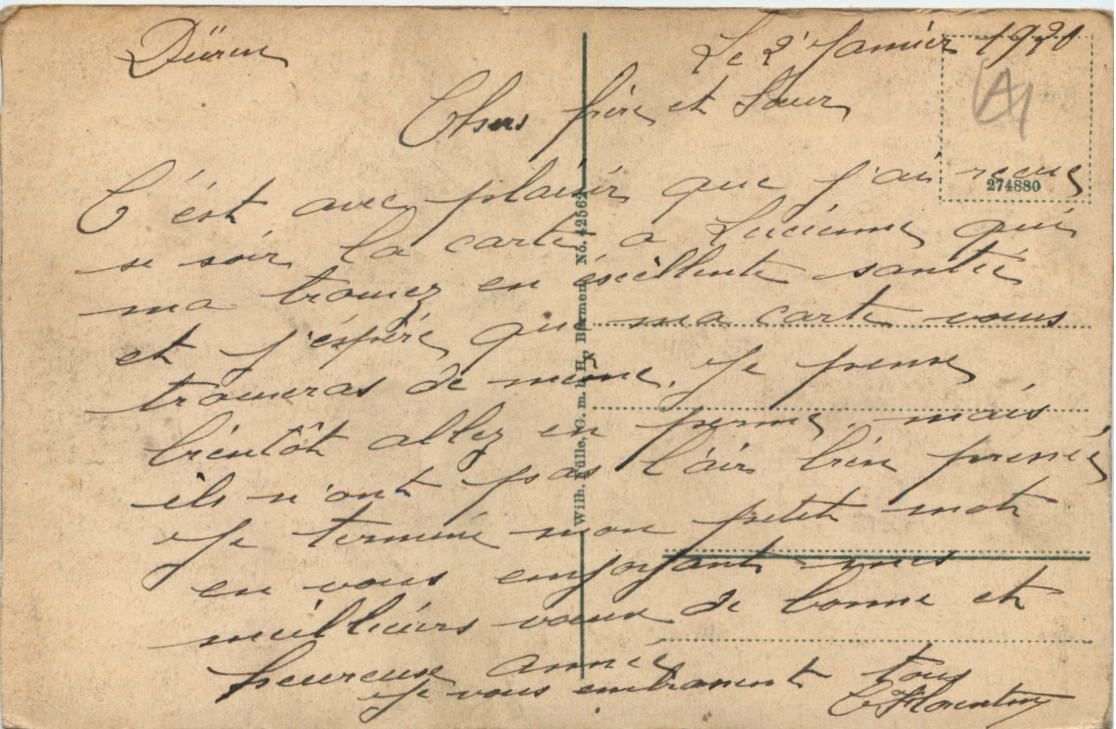 Düren Le 2 Janvier 1921
Chers frère et Sœur
C'ést avec plaisir que j'ai reçue
se soir la carte a Lucienne qui
ma trouvez en éxcéllente santée
et j'éspére que ma carte vous
trouveras de même. Je pense
bientôt allez en perme, mais
ils n'ont pas l'air bien pressés
Je terminé mon petit mot
en vous envoyant mes
meilliéurs vœux de bonne et
heureuse année
Je vous embrassent tous
Florentin
274880
Wilh. Fülle, G. m. b. H., Barmen No. 42562